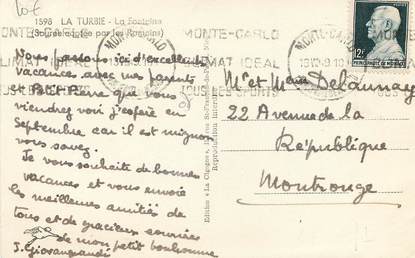 10€
1598 LA TURBIE - La Fontaine
(Source captée par les Romains)
MONTE-CARLO
CLIMAT IDEAL
TOUS LES SPORTS
Nous passons ici d'excellentes
vacances avec mes parents
et que vous
viendrez voir j'espère en
Septembre car il est mignon
vous savez.
Je vous souhaite de bonnes
vacances et vous envoie
les meilleures amitiés de
tous et de gracieux sourires
de mon petit bonhomme
Edition "La Cigogne"
Reproduction interdite
Mr et Mme Delaunay
22 Avenue de la
République
Montrouge